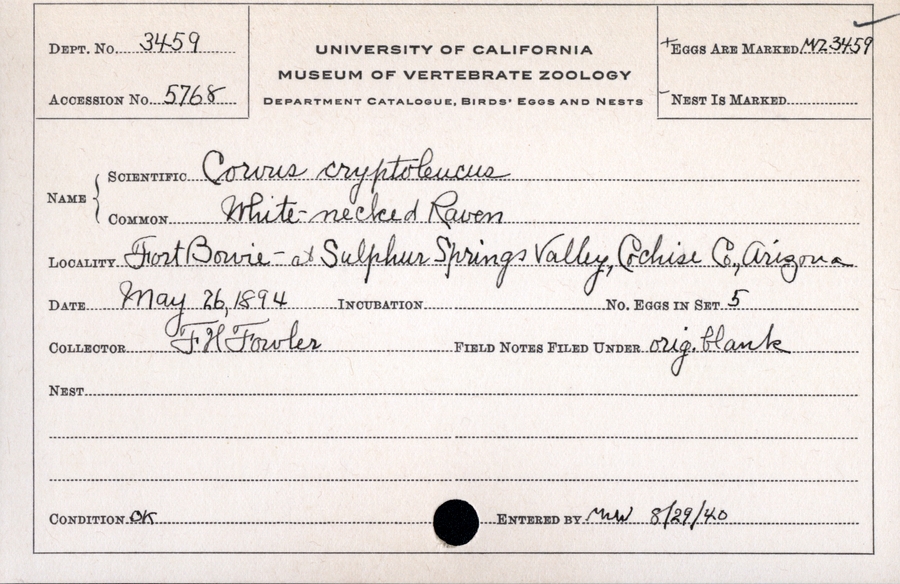 DEPT. No. 3459
UNIVERSITY OF CALIFORNIA
MUSEUM OF VERTEBRATE ZOOLOGY
DEPARTMENT CATALOGUE, BIRDS' EGGS AND NESTS
+EGGS ARE MARKED MVZ3459
ACCESSION No. 5768
-NEST IS MARKED
NAME
SCIENTIFIC Corvus cryptoleucus
COMMON White-necked Raven
LOCALITY Fort Bowie - at Sulphur Springs Valley, Cochise Co., Arizona
DATE May 26, 1894 INCUBATION No. EGGS IN SET 5
COLLECTOR F.H. Fowler FIELD NOTES FILED UNDER orig. blank
NEST
CONDITION OK ENTERED BY MW 8/29/40